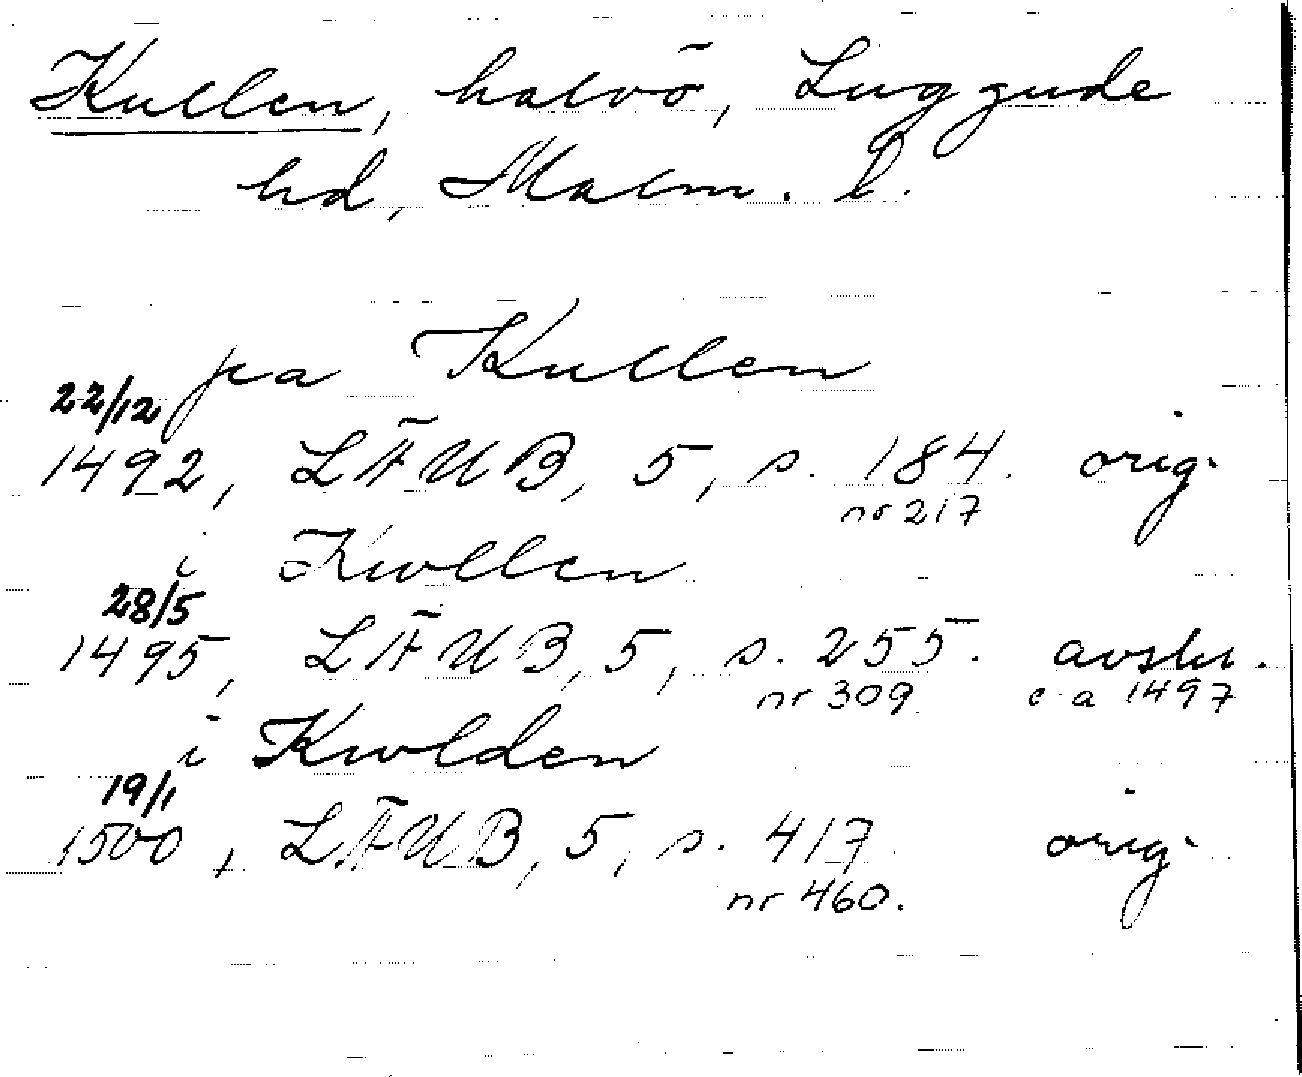 Kullen, halvö, Luggude
hd, Malm. l.
pa Kullen
22/12
1492, LÄUB, 5, s. 184. orig.
nr 217
i Kwllen
28/5
1495, LÄUB, 5, s. 255. avskr.
nr 309 ca 1497
i Kwlden
19/1
1500, LÄUB, 5, s. 417 orig.
nr 460.